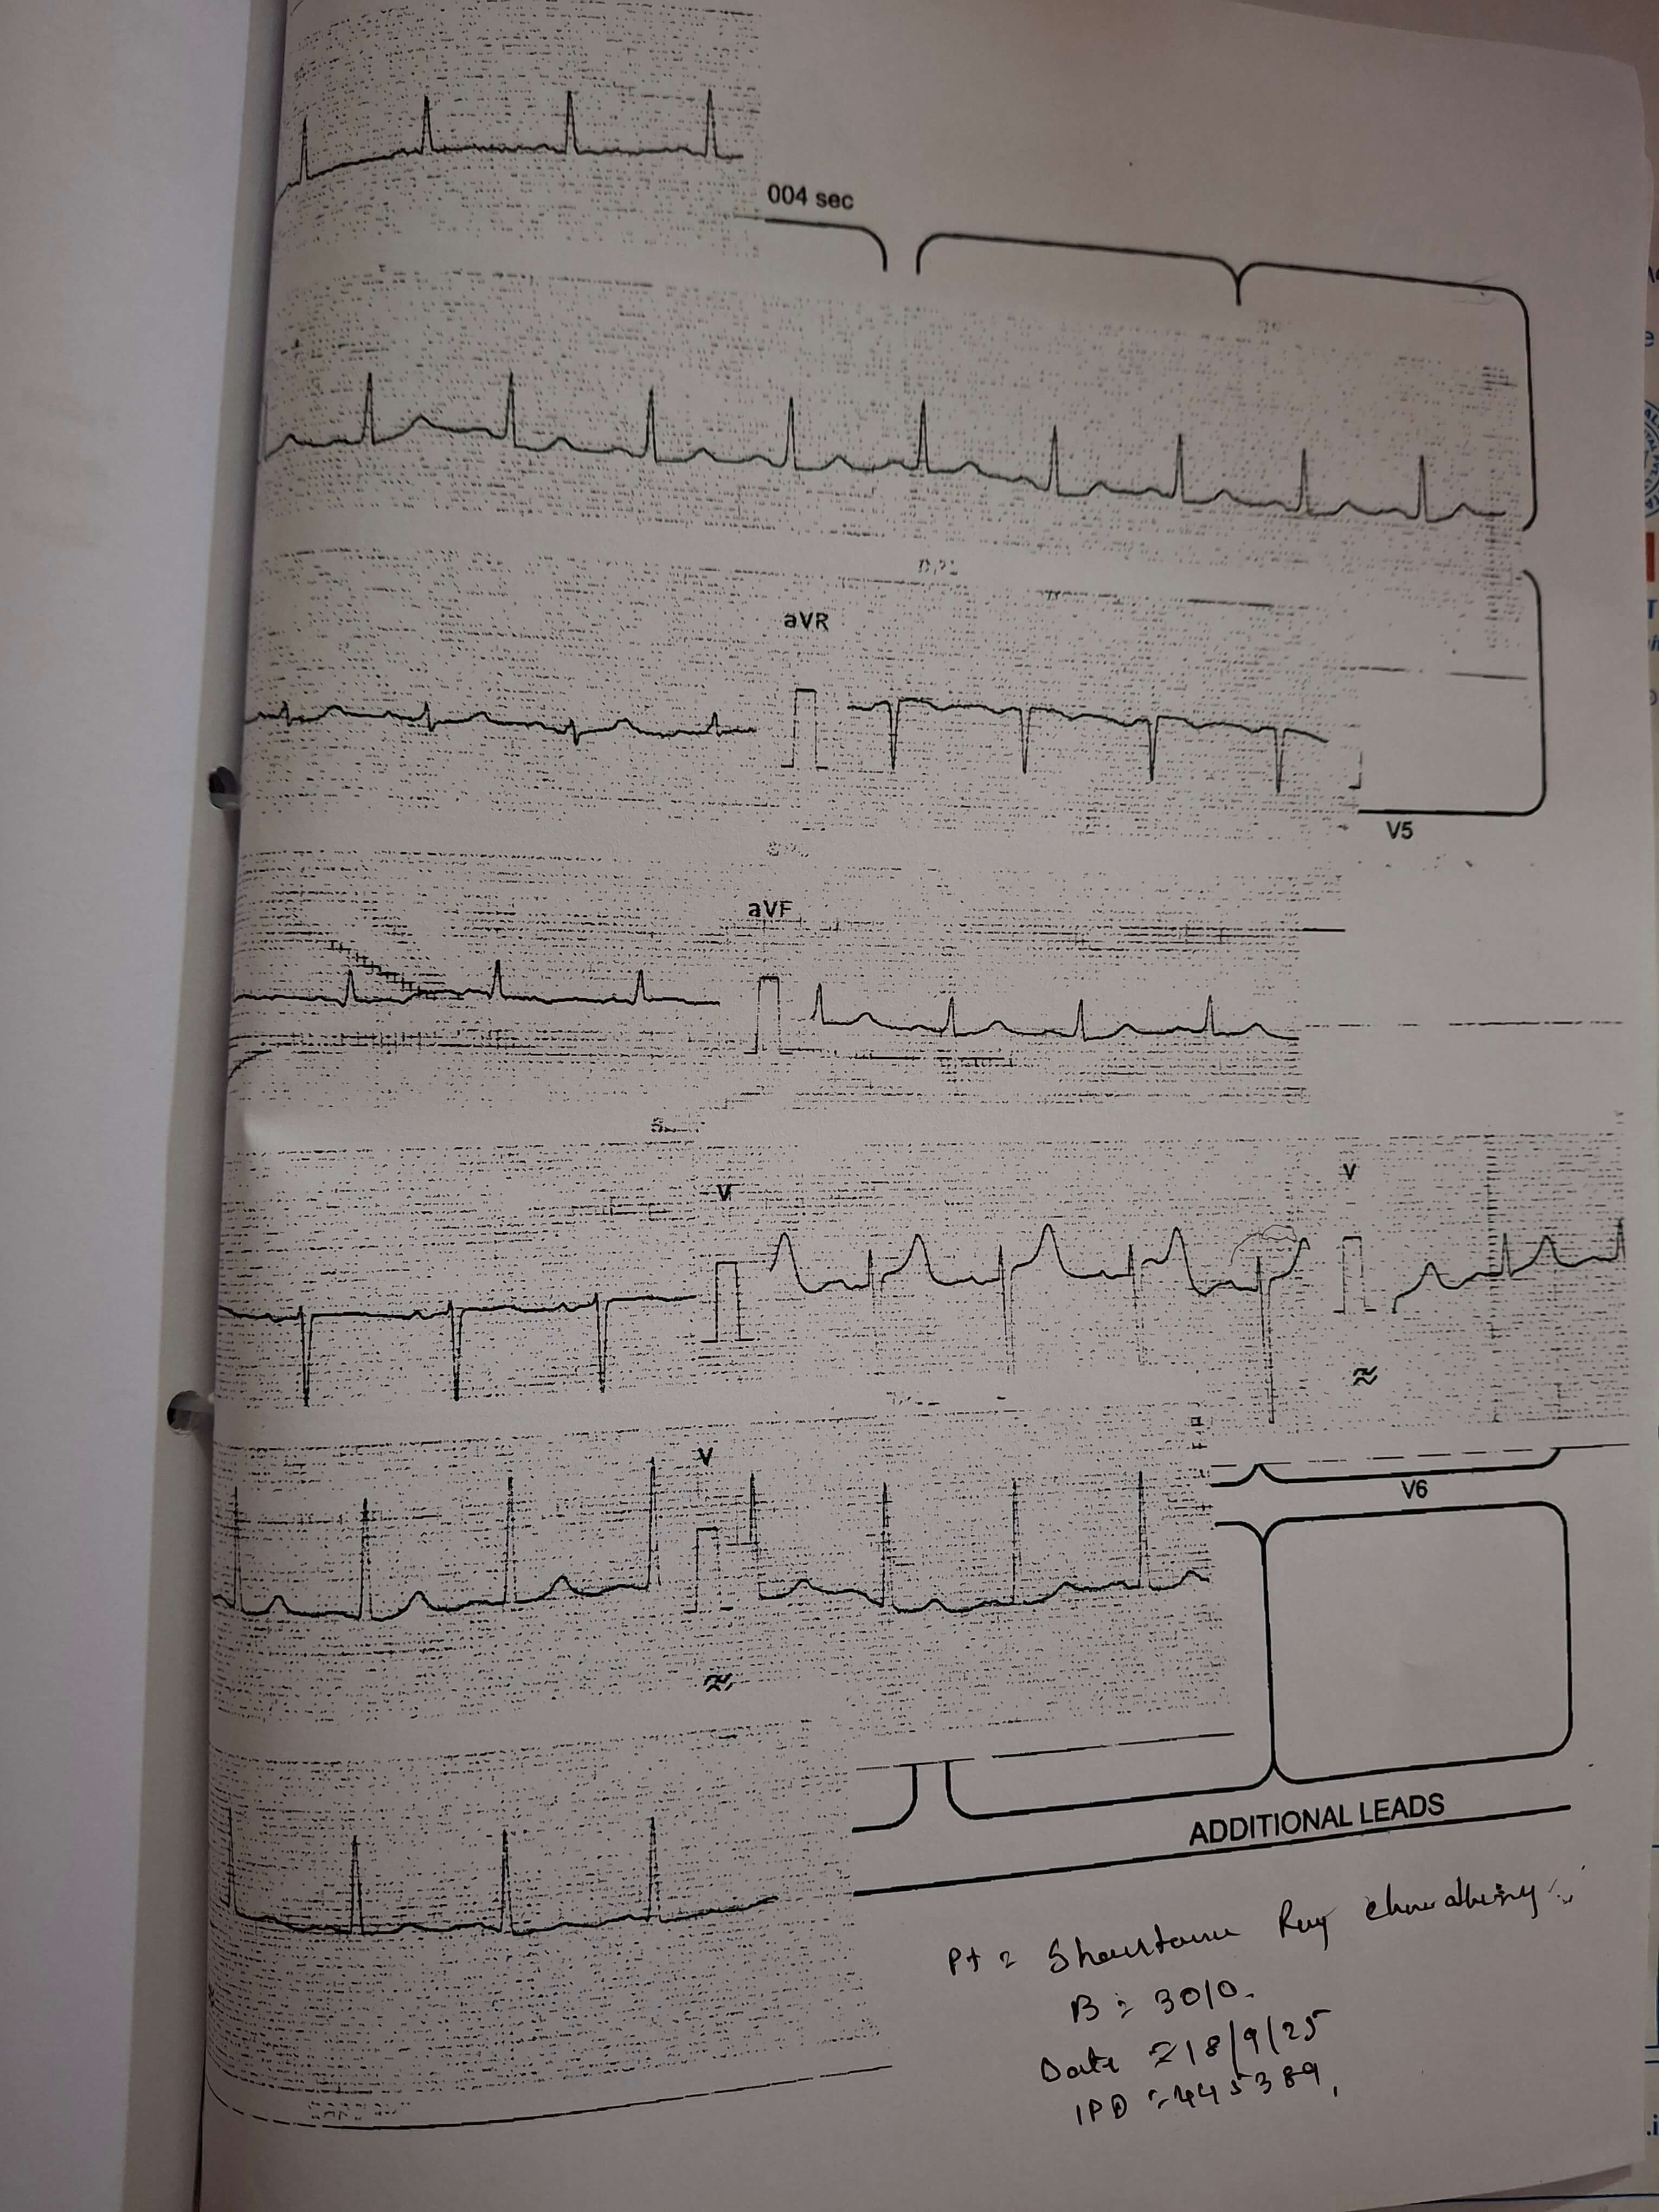 004 sec
aVR
V5
aVF
V
V
V
V6
ADDITIONAL LEADS
Pt = Ray
B = 3010.
Date = 18/9/25
IPD = 445389,